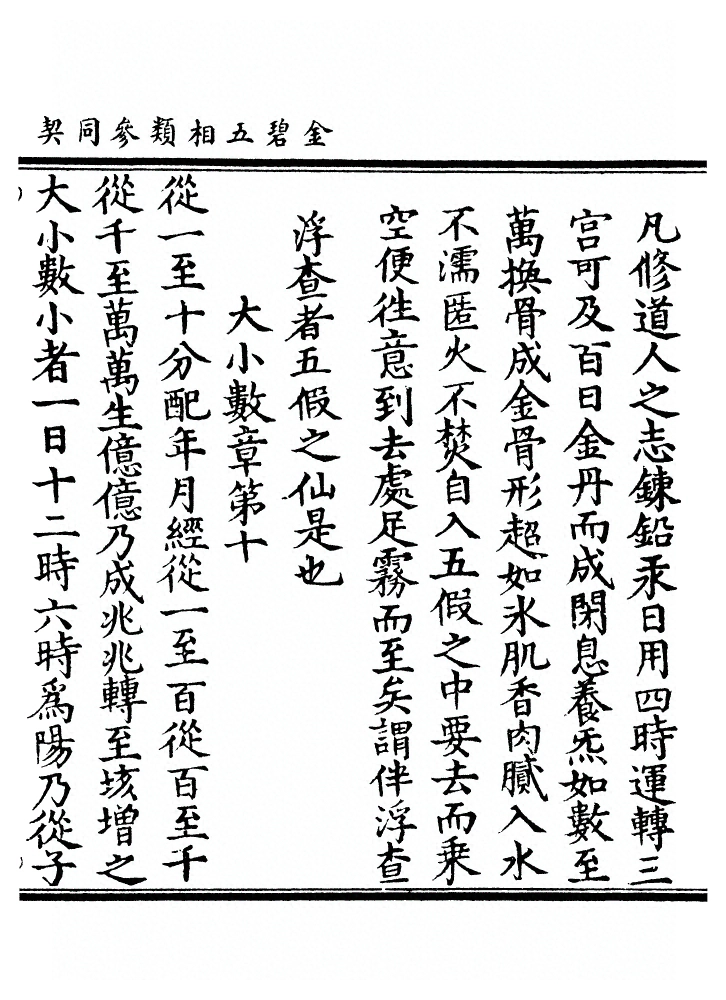 金碧五相類參同契
凡修道人之志鍊鉛汞日用四時運轉三
宮可及百日金丹而成閑息養炁如數至
萬換骨成金骨形超如氷肌香肉膩入水
不濡匿火不焚自入五假之中要去而乘
空便徃意到去處足霧而至矣謂伴浮查
浮查者五假之仙是也
大小數章第十
從一至十分配年月經從一至百從百至千
從千至萬萬生億億乃成兆兆轉至垓增之
大小數小者一日十二時六時爲陽乃從子